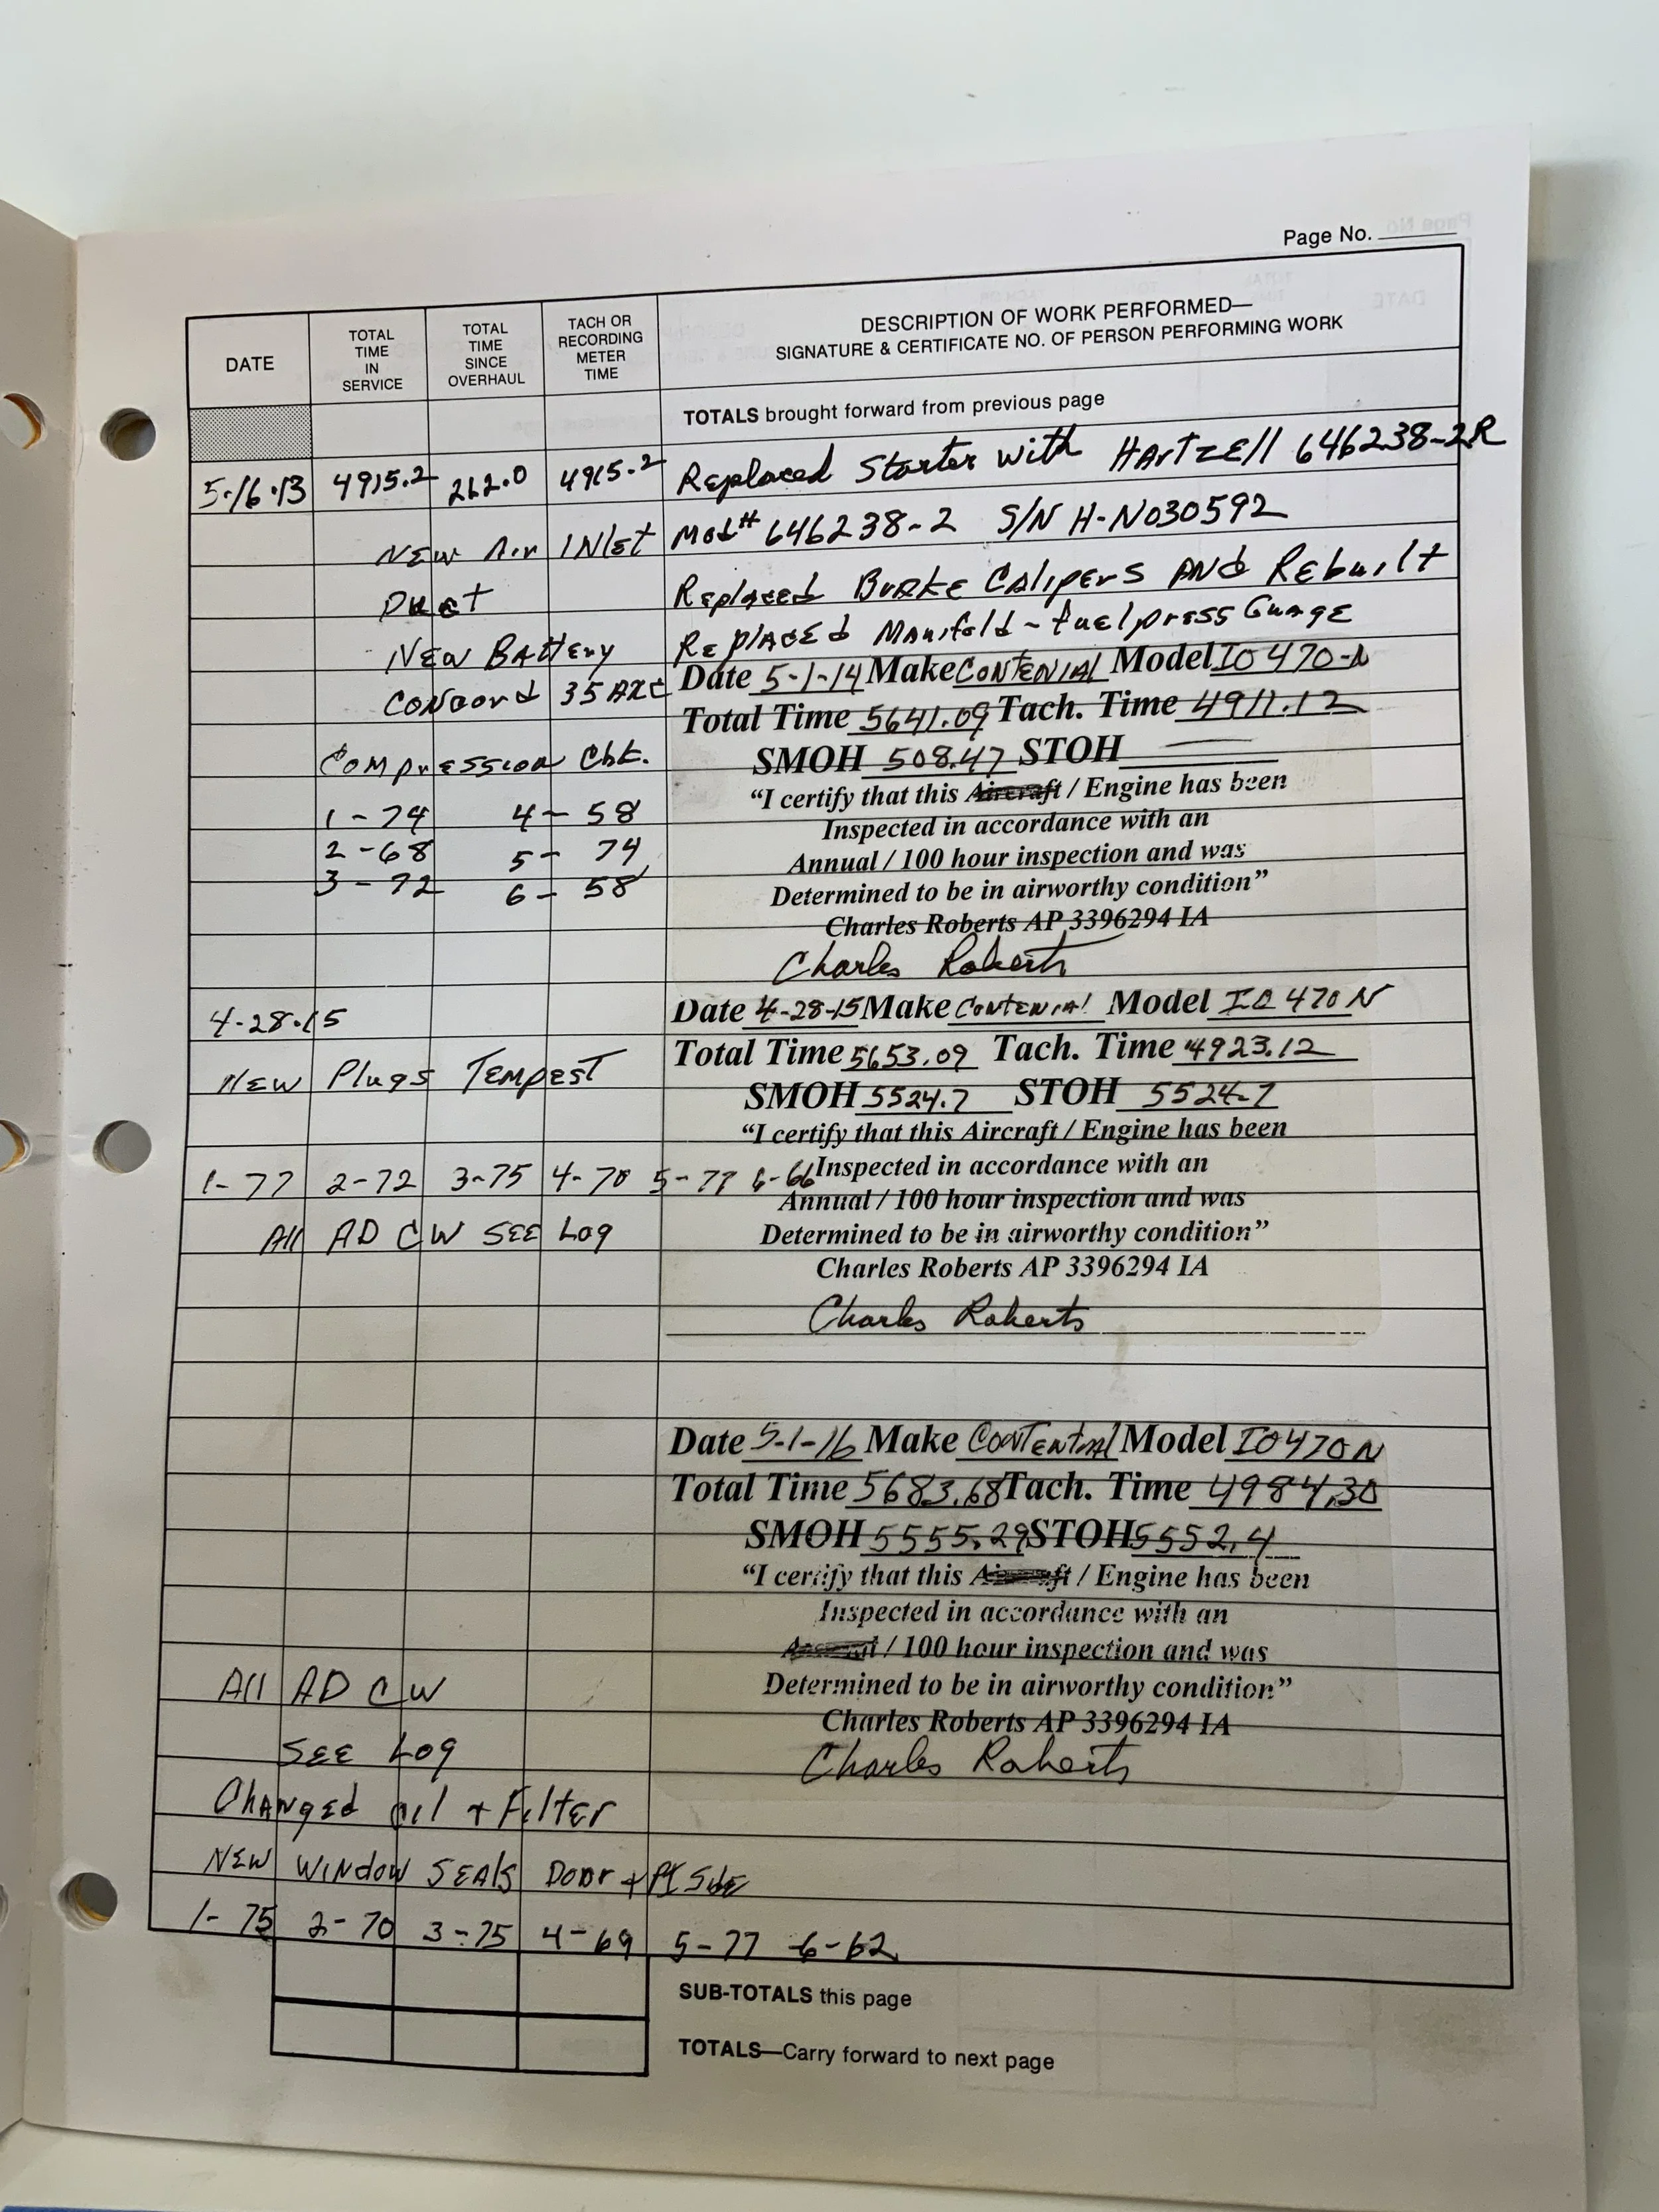 Page No.
DATE
TOTAL TIME IN SERVICE
TOTAL TIME SINCE OVERHAUL
TACH OR RECORDING METER TIME
DESCRIPTION OF WORK PERFORMED—
SIGNATURE & CERTIFICATE NO. OF PERSON PERFORMING WORK
TOTALS brought forward from previous page
5-16-13 4915.2 262.0 4915.2 Replaced Starter with HArTzEll 646238-2R
NEW Air INlet Mod# 646238-2 S/N H-N030592
Duct Replaced Brake Calipers AND Rebuilt
NEW BAttery Replaced Manifold - fuel press Guage
CONCord 35 AXC Date 5-1-14 Make CONTENIAL Model IO 470-N
Total Time 5641.09 Tach. Time 4911.12
Compression Chk. SMOH 508.47 STOH
"I certify that this Aircraft / Engine has been
1 - 74 4 - 58 Inspected in accordance with an
2 - 68 5 - 74 Annual / 100 hour inspection and was
3 - 72 6 - 58 Determined to be in airworthy condition"
Charles Roberts AP 3396294 IA
Charles Roberts
4-28-15 Date 4-28-15 Make CONTENIAl Model IO 470 N
Total Time 5653.09 Tach. Time 4923.12
NEW Plugs TEMPEST SMOH 5524.7 STOH 5524.7
"I certify that this Aircraft / Engine has been
1-77 2-72 3-75 4-70 5-77 6-66 Inspected in accordance with an
Annual / 100 hour inspection and was
All AD CW SEE Log Determined to be in airworthy condition"
Charles Roberts AP 3396294 IA
Charles Roberts
Date 5-1-16 Make CONTENTIAl Model IO470N
Total Time 5683.68 Tach. Time 4984.30
SMOH 5555.29 STOH 5552.4
"I certify that this Aircraft / Engine has been
Inspected in accordance with an
Annual / 100 hour inspection and was
All AD CW Determined to be in airworthy condition"
Charles Roberts AP 3396294 IA
SEE Log Charles Roberts
Changed oil + Filter
NEW WINDOW SEAls Door + Side
1-75 2-70 3-75 4-69 5-77 6-62
SUB-TOTALS this page
TOTALS—Carry forward to next page